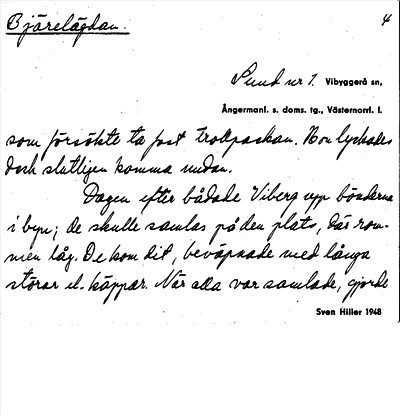 Bjärelägdan.
4
Sund nr 1. Vibyggerå sn,
Ångermanl. s. doms. tg., Västernorrl. l.
som försökte ta fast trollpackan. Hon lyckades
dock slutligen komma undan.
Dagen efter bådade Viberg upp bönderna
i byn; de skulle samlas på den plats, där
men låg. De kom dit, beväpnade med långa
störar el. käppar. När alla var samlade, gjorde
Sven Hiller 1948